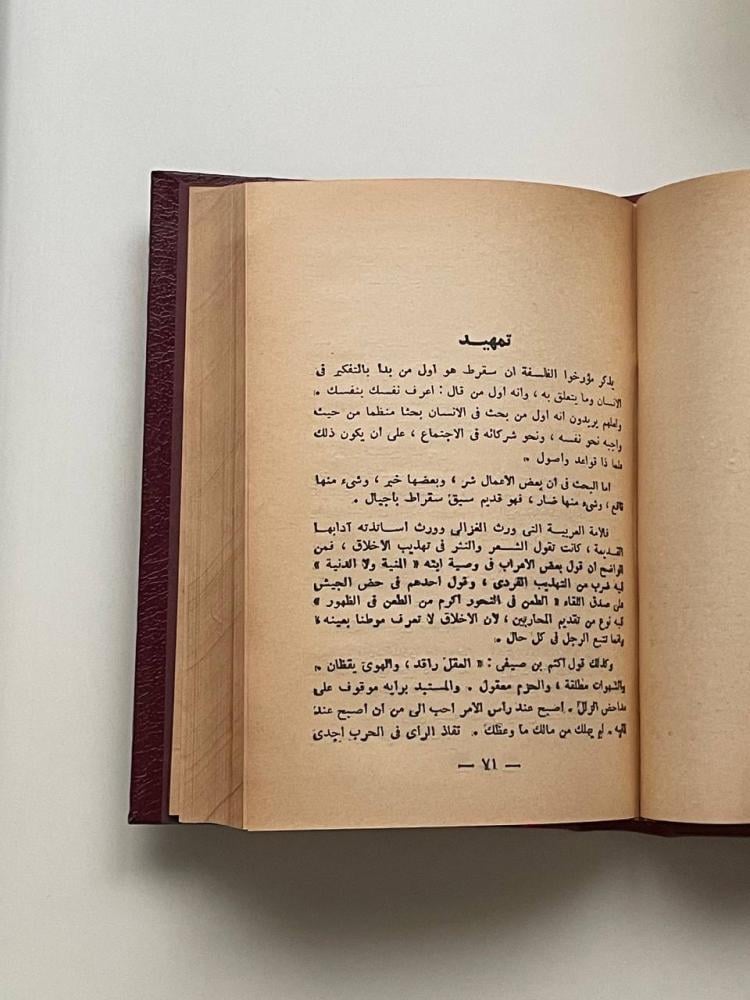 تمهيد
يذكر مؤرخوا الفلسفة ان سقرط هو أول من بدأ بالتفكير فى
الانسان وما يتعلق به ، وانه أول من قال : اعرف نفسك بنفسك .
ولعلهم يريدون انه أول من بحث فى الانسان بحثا منظما من حيث
واجبه نحو نفسه ، ونحو شركائه فى الاجتماع ، على أن يكون ذلك
علما ذا قواعد واصول .
اما البحث فى أن بعض الأعمال شر ، وبعضها خير ، وشىء منها
نافع ، وشىء منها ضار ، فهو قديم سبق سقراط بأجيال .
فالامة العربية التى ورث الغزالى وورث اساتذته آدابها
القديمة ، كانت تقول الشعر والنثر فى تهذيب الأخلاق ، فمن
الواضح ان قول بعض الأعراب فى وصية ابنه « المنية ولا الدنية »
فيه ضرب من التهذيب الفردى ، وقول أحدهم فى حض الجيش
على صدق اللقاء « الطعن فى النحور أكرم من الطعن فى الظهور »
فيه نوع من تقديم المحاربين ، لأن الأخلاق لا تعرف موطنا بعينه ،
وانما تتبع الرجل فى كل حال .
وكذلك قول اكثم بن صيفى : « العقل راقد ، والهوى يقظان .
والشهوات مطلقة ، والحزم معقول . والمستبد برأيه موقوف على
مداحض الزلل . أصبح عند رأس الأمر أحب الى من أن أصبح عند
ذنبه . لم يهلك من مالك ما وعظك . نفاذ الرأى فى الحرب أجدى
— ٧١ —